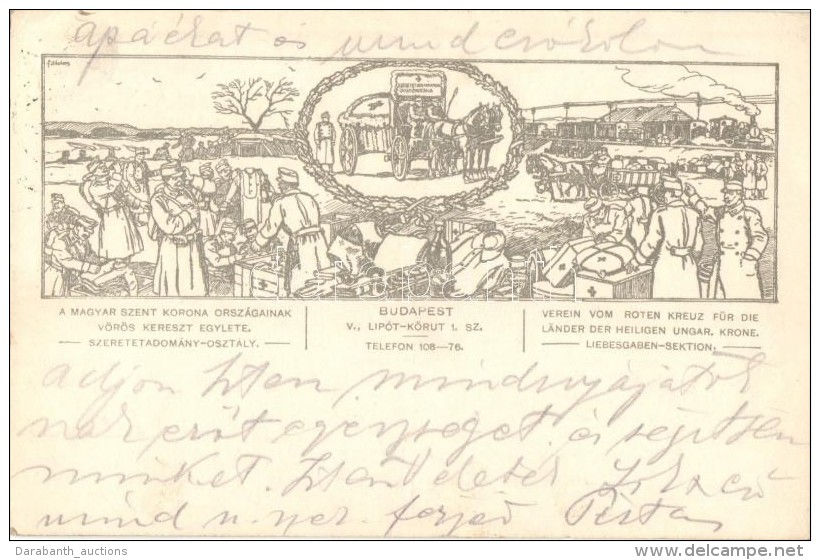 apáékat és mind csókolom
A MAGYAR SZENT KORONA ORSZÁGAINAK
VÖRÖS KERESZT EGYLETE.
SZERETETADOMÁNY-OSZTÁLY.
BUDAPEST
V., LIPÓT-KÖRUT 1. SZ.
TELEFON 108—76.
VEREIN VOM ROTEN KREUZ FÜR DIE
LÄNDER DER HEILIGEN UNGAR. KRONE.
LIEBESGABEN-SEKTION.
adjon Isten mindnyájatok
nak erőt egészséget és segítsen
minket. Isten
mind
Darabanth_auctions
www.delcampe.net